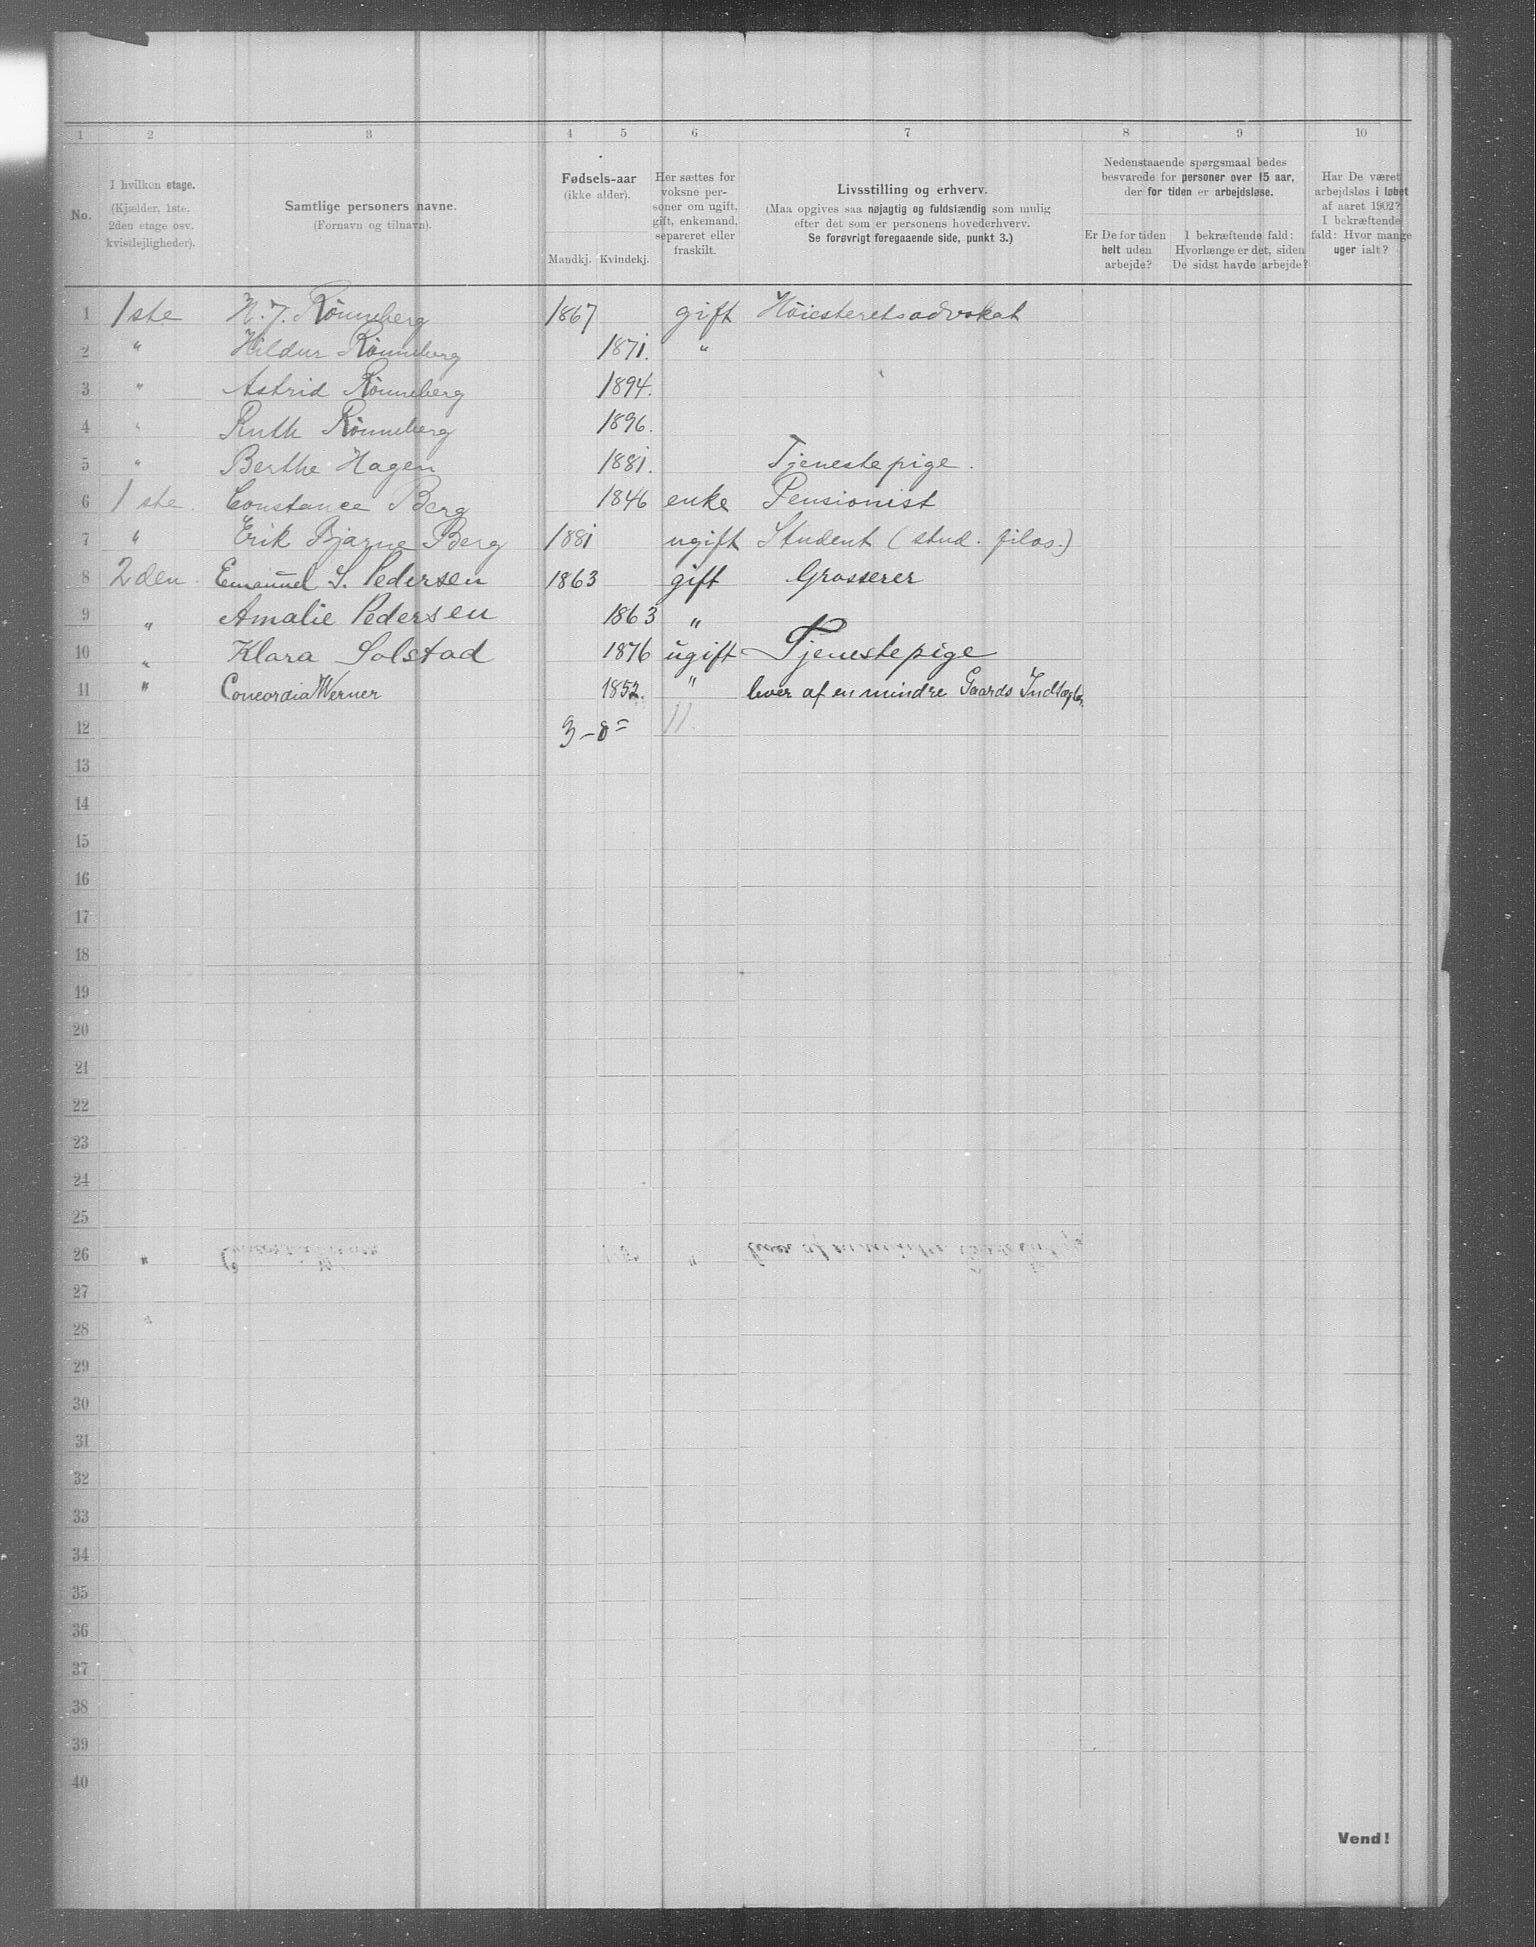 1 2 3 4 5 6 7 8 9 10
No.
I hvilken etage.
(Kjælder, 1ste.
2den etage osv.
kvistlejligheder).
Samtlige personers navne.
(Fornavn og tilnavn).
Fødsels-aar
(ikke alder).
Mandkj. Kvindekj.
Her sættes for
voksne per-
soner om ugift,
gift, enkemand,
separeret eller
fraskilt.
Livsstilling og erhverv.
(Maa opgives saa nøjagtig og fuldstændig som mulig
efter det som er personens hovederhverv.
Se forøvrigt foregaaende side, punkt 3.)
Nedenstaaende spørgsmaal bedes
besvarede for personer over 15 aar,
der for tiden er arbejdsløse.
Er De for tiden
helt uden
arbejde?
I bekræftende fald:
Hvorlænge er det, siden
De sidst havde arbejde?
Har De været
arbejdsløs i løbet
af aaret 1902?
I bekræftende
fald: Hvor mange
uger ialt?
1 1ste N. J. Rönneberg 1867 gift Höiesteretsadvokat
2 " Hildur Rönneberg 1871. "
3 " Astrid Rönneberg 1894.
4 " Ruth Rönneberg 1896.
5 " Berthe Hagen 1881. Tjenestepige.
6 1ste. Constance Berg 1846 enke Pensionist
7 " Erik Bjarne Berg 1881 ugift Student (stud. filos.)
8 2den. Emanuel S. Pedersen 1863 gift Grosserer
9 " Amalie Pedersen 1863 "
10 " Klara Solstad 1876 ugift Tjenestepige
11 " Concordia Werner 1852. " lever af en mindre Gaards Indtægter.
12 3 – 8 = 11.
13
14
15
16
17
18
19
20
21
22
23
24
25
26
27
28
29
30
31
32
33
34
35
36
37
38
39
40
Vend!